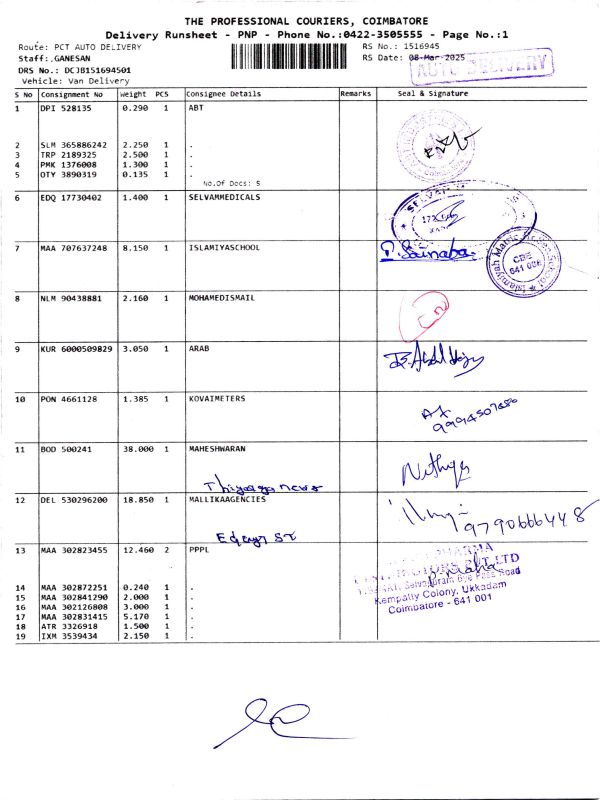 THE PROFESSIONAL COURIERS, COIMBATORE
Delivery Runsheet - PNP - Phone No.:0422-3505555 - Page No.:1
Route: PCT AUTO DELIVERY RS No.: 1516945
Staff:.GANESAN RS Date: 08-Mar-2025
AUTO DELIVERY
DRS No.: DCJB151694501
Vehicle: Van Delivery
S No Consignment No Weight PCS Consignee Details Remarks Seal & Signature
1 DPI 528135 0.290 1 ABT
2 SLM 365886242 2.250 1 .
3 TRP 2189325 2.500 1 .
4 PMK 1376008 1.300 1 .
5 OTY 3890319 0.135 1 .
No.Of Docs: 5
6 EDQ 17730402 1.400 1 SELVAMMEDICALS
7 MAA 707637248 8.150 1 ISLAMIYASCHOOL
P. Sainaba
CBE
641 008
8 NLM 90438881 2.160 1 MOHAMEDISMAIL
9 KUR 6000509829 3.050 1 ARAB
10 PON 4661128 1.385 1 KOVAIMETERS
11 BOD 500241 38.000 1 MAHESHWARAN
Nithya
12 DEL 530296200 18.850 1 MALLIKAAGENCIES
9790666448
13 MAA 302823455 12.460 2 PPPL
Kempatty Colony, Ukkadam
Coimbatore - 641 001
14 MAA 302872251 0.240 1 .
15 MAA 302841290 2.000 1 .
16 MAA 302126808 3.000 1 .
17 MAA 302831415 5.170 1 .
18 ATR 3326918 1.500 1 .
19 IXM 3539434 2.150 1 .